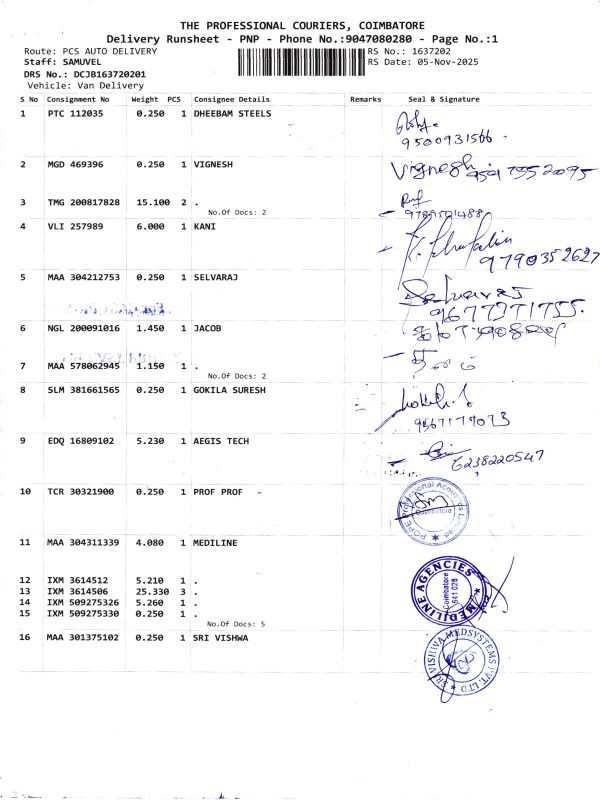 THE PROFESSIONAL COURIERS, COIMBATORE
Delivery Runsheet - PNP - Phone No.:9047080280 - Page No.:1
Route: PCS AUTO DELIVERY
RS No.: 1637202
Staff: SAMUVEL
RS Date: 05-Nov-2025
DRS No.: DCJB163720201
Vehicle: Van Delivery
S No Consignment No Weight PCS Consignee Details Remarks Seal & Signature
1 PTC 112035 0.250 1 DHEEBAM STEELS
9500931566
2 MGD 469396 0.250 1 VIGNESH
Vignesh
3 TMG 200817828 15.100 2 .
No.Of Docs: 2
4 VLI 257989 6.000 1 KANI
9790352627
5 MAA 304212753 0.250 1 SELVARAJ
Selvaraj
9677771755.
6 NGL 200091016 1.450 1 JACOB
7 MAA 578062945 1.150 1 .
No.Of Docs: 2
8 SLM 381661565 0.250 1 GOKILA SURESH
9 EDQ 16809102 5.230 1 AEGIS TECH
6238220547
10 TCR 30321900 0.250 1 PROF PROF
POPE Professional Acoustics Limited
Coimbatore
11 MAA 304311339 4.080 1 MEDILINE
MEDILINE AGENCIES
Coimbatore
641 028
12 IXM 3614512 5.210 1 .
13 IXM 3614506 25.330 3 .
14 IXM 509275326 5.260 1 .
15 IXM 509275330 0.250 1 .
No.Of Docs: 5
16 MAA 301375102 0.250 1 SRI VISHWA
SRI VISHWA MEDSYSTEMS PVT. LTD